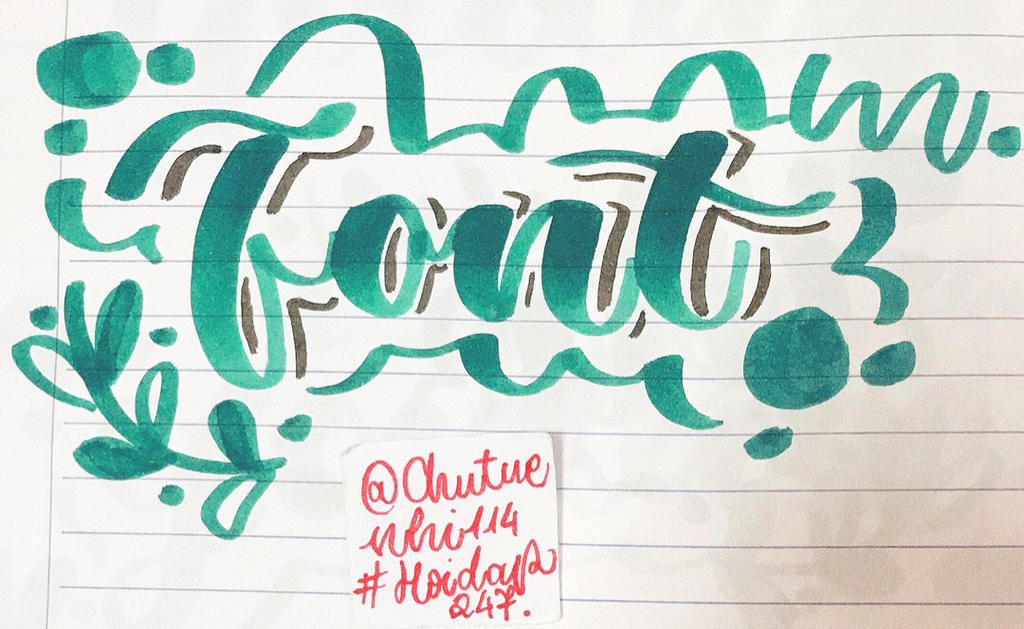 Font
@Chutue
nhi114
#Hoidap
247.